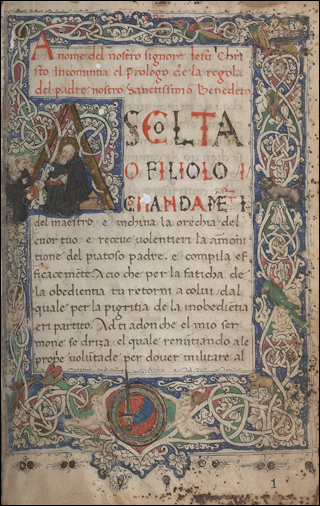 A nome del nostro signore Iesu Chri
sto Incomintia el prologo de la regola
del padre nostro Sanctissimo Benedeto
ASCOLTA
O FILIOLO I
COMANDAMETI
del maestro, e inchina la orechia del
cuor tuo e receue uolentieri la amoni
tione del piatoso padre, e compila ef
ficacemete. Acio che per la faticha de
la obedientia tu retorni a colui, dal
quale per la pigritia de la inobedietia
eri partito. Ad ti adonche el mio ser
mone se driza, el quale renutiando ale
proprie uolutade per douer militare al
1